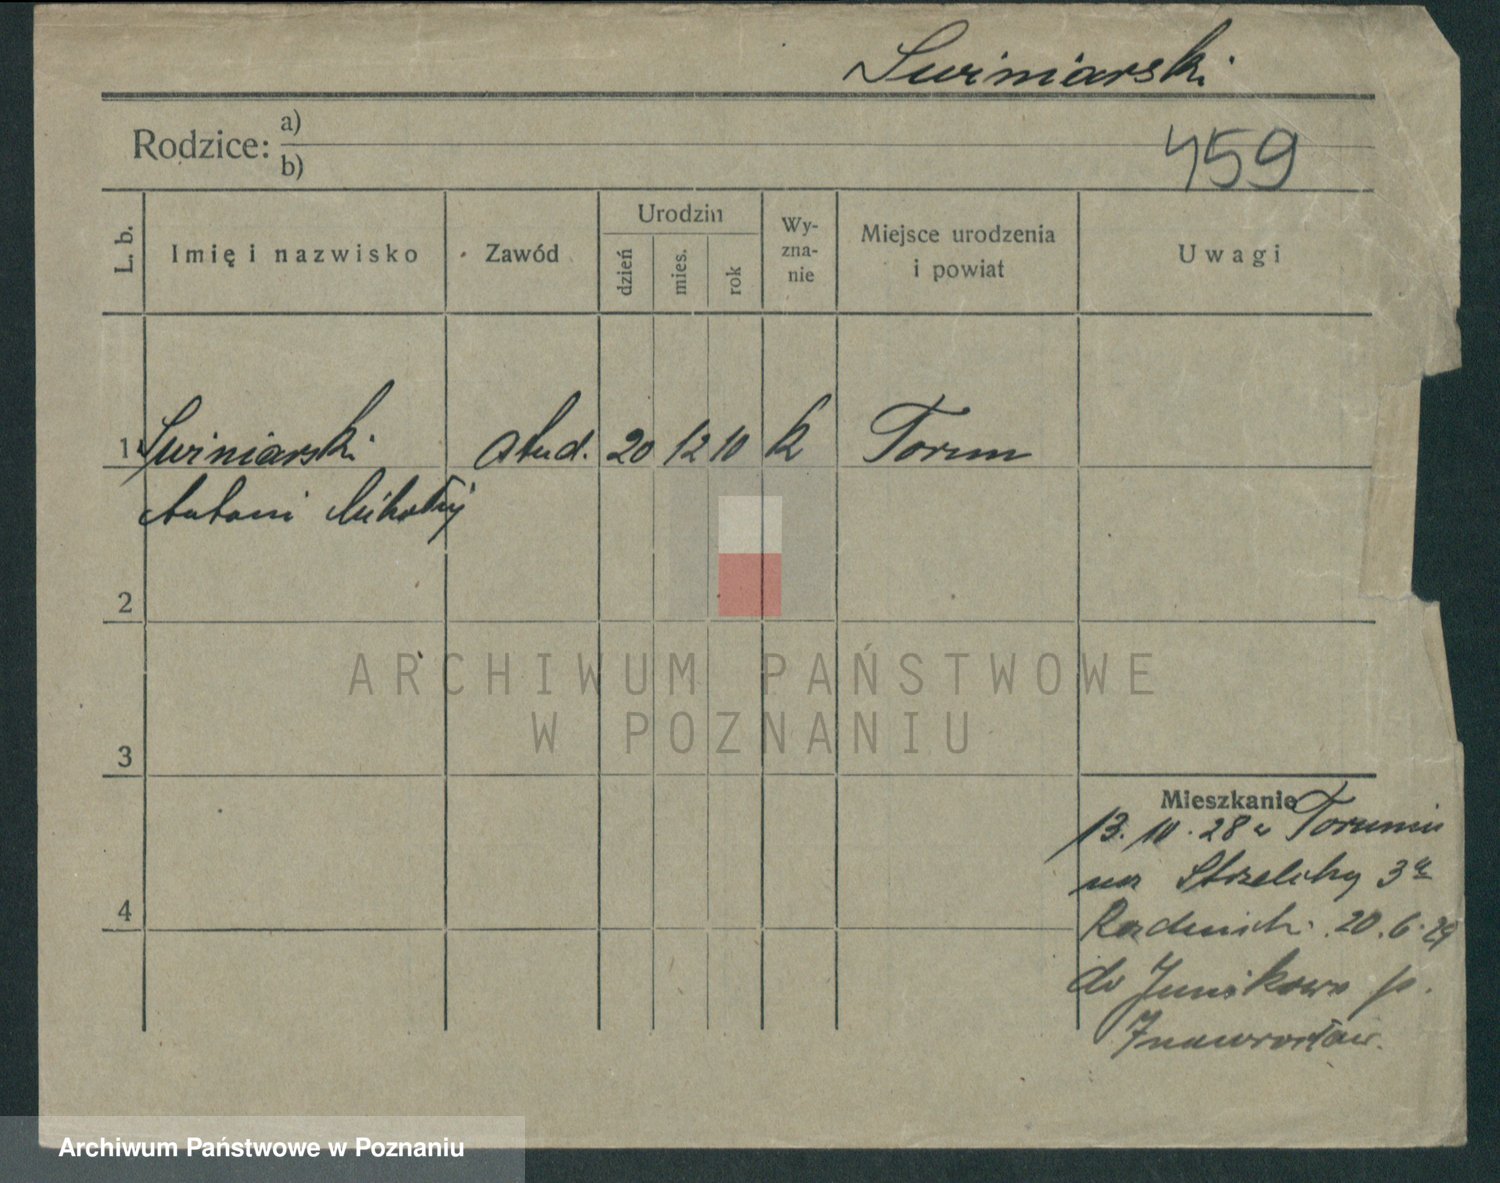 Swiniarski
Rodzice: a)
b)
459
L. b.
Imię i nazwisko
Zawód
Urodzin
dzień
mies.
rok
Wy-
zna-
nie
Miejsce urodzenia
i powiat
Uwagi
1 Swiniarski stud. 20 12 10 k Torun
Antoni Mikołaj
2
3
4
Mieszkanie
13. 10. 28 z Torunia
na Strzelecką 3a
20. 6. 29
do Junikowo p.
Inowrocław.
ARCHIWUM PAŃSTWOWE
W POZNANIU
Archiwum Państwowe w Poznaniu